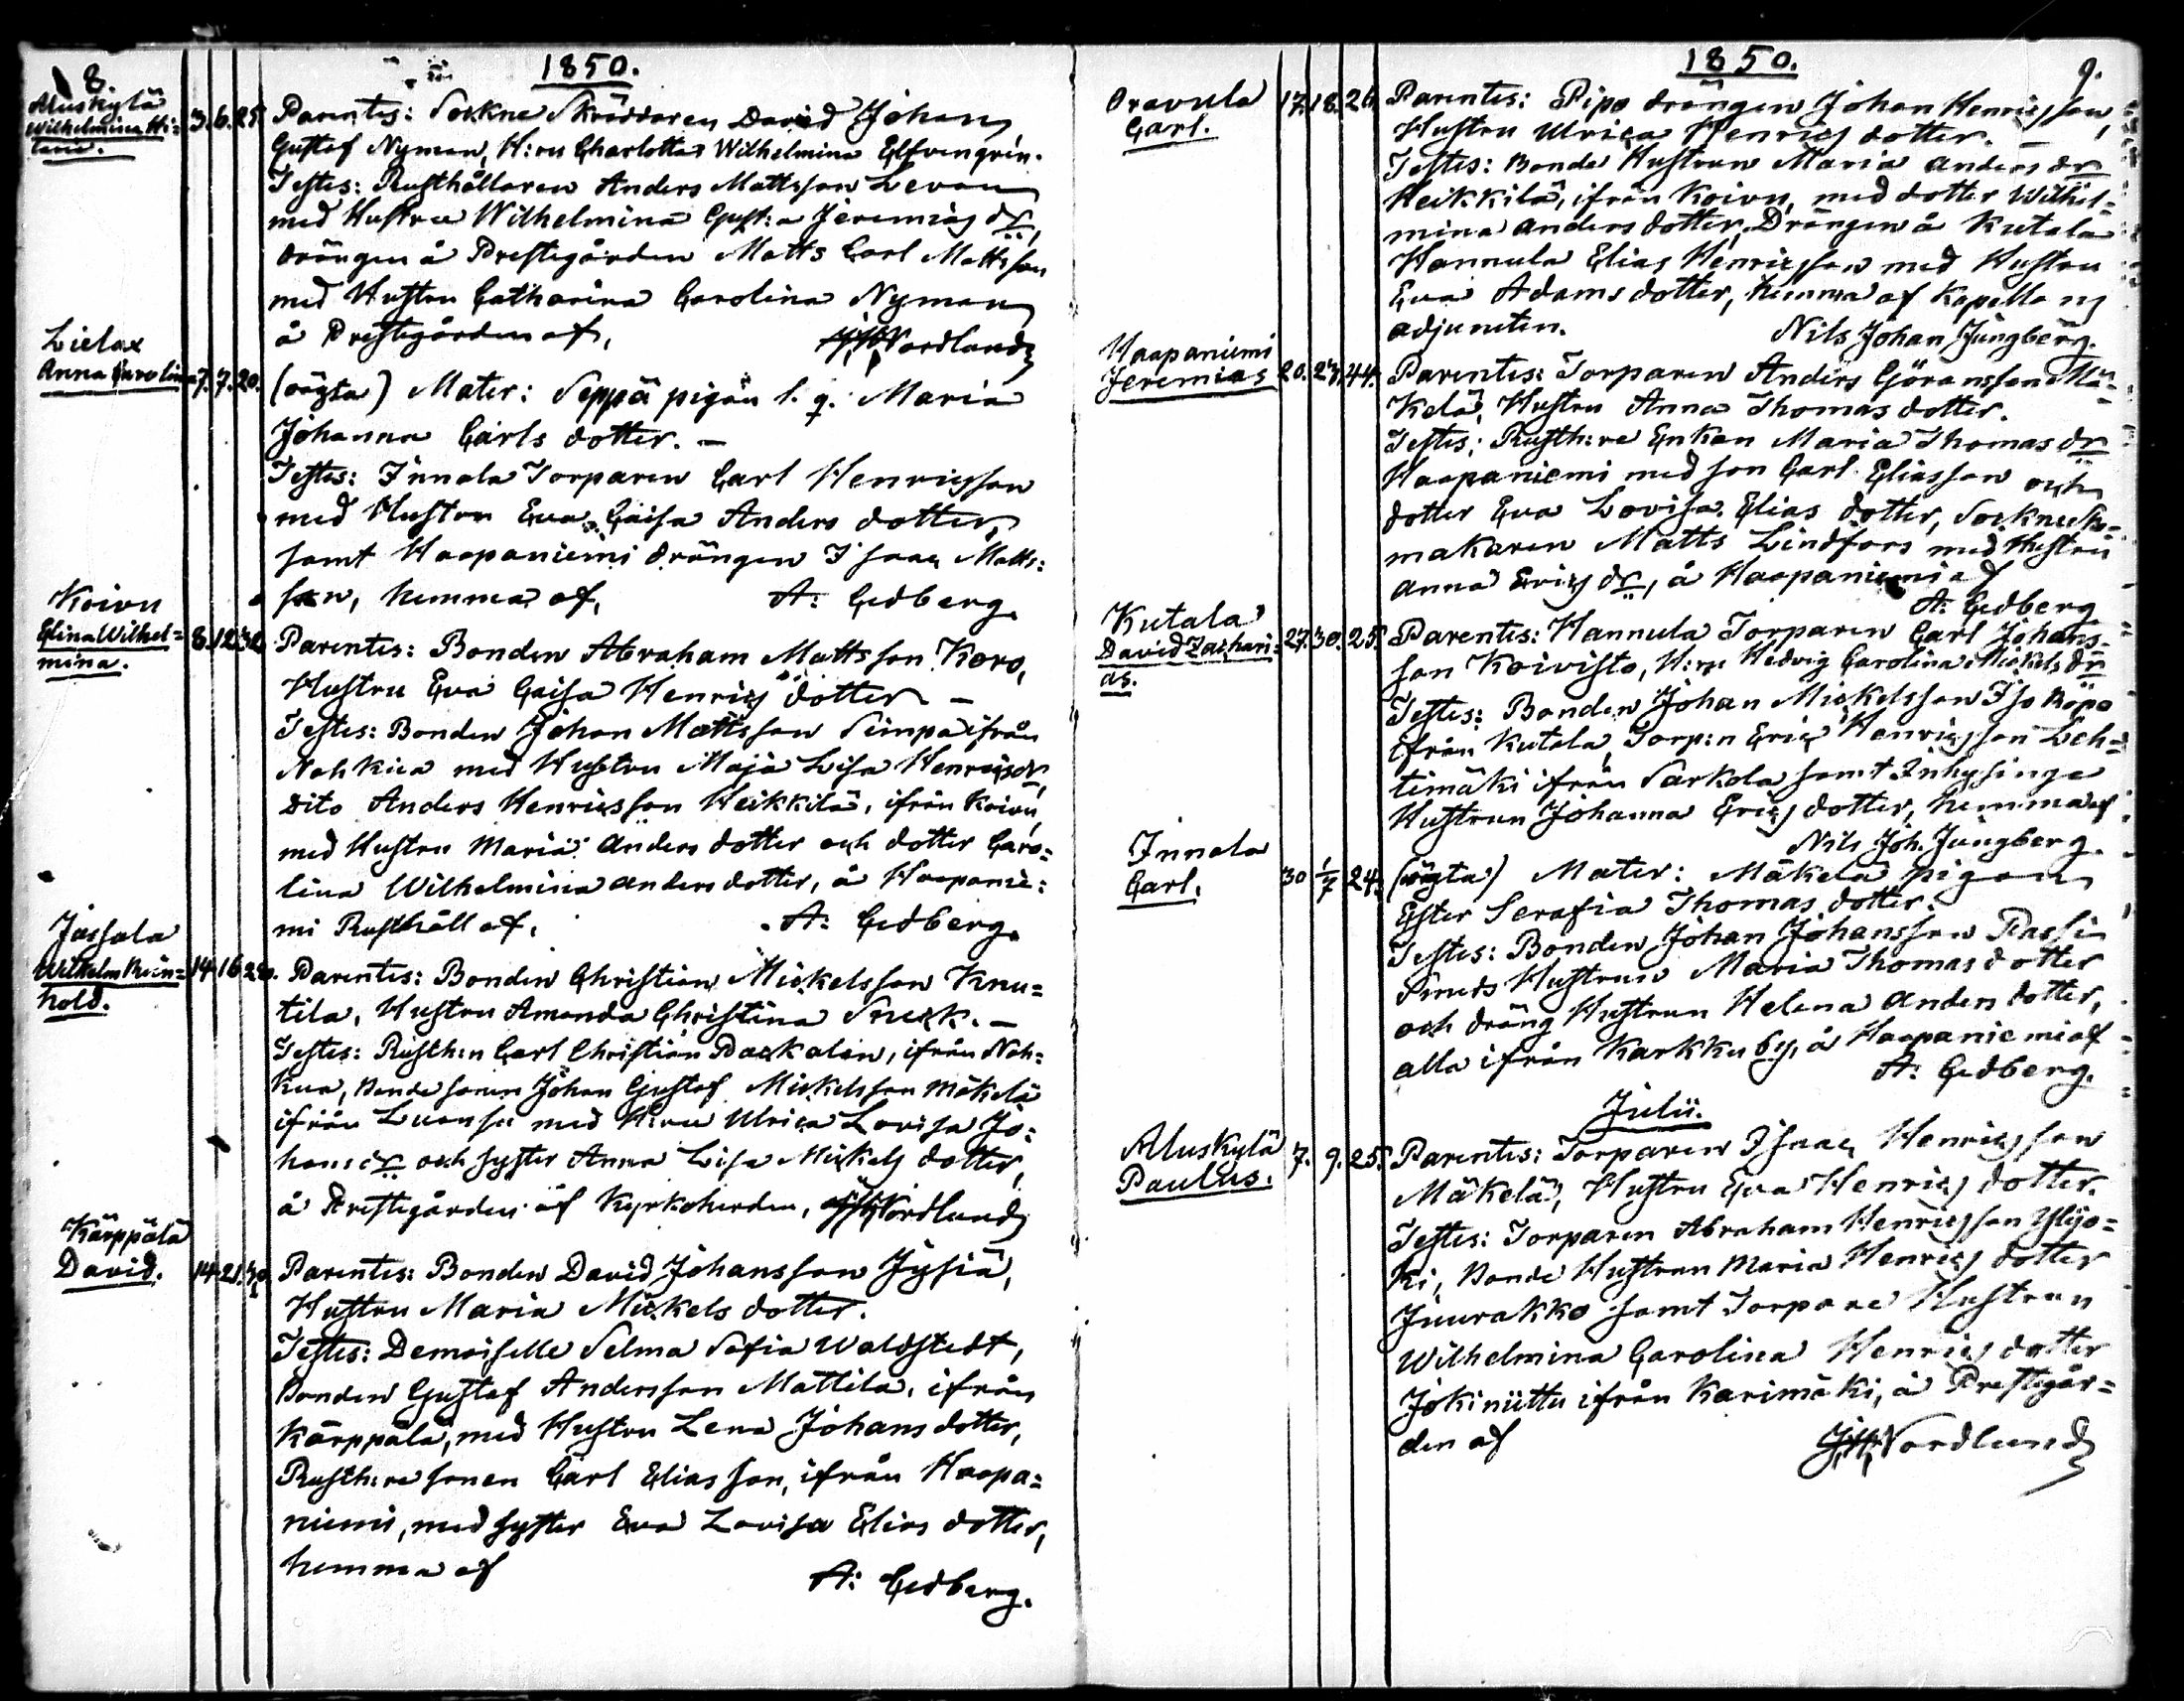 8.
1850.
Aluskylä
Wilhelmina Hi=
laria.
3. 6. 25.
Parentes: Sockne Skräddaren David Johan
Gustaf Nyman, H:ru Charlotta Wilhelmina Elfvengren.
Testes: Rusthållaren Anders Mattsson Levan
med Hustru Wilhelmina Gust:a Jeremias dr,
drängen å Prestegården Matts Carl Mattsson
med Hustru Catharina Carolina Nyman
å Prestegården af, Nordlund
Lielax
Anna Carolina
7. 7. 20.
(oägta) Mater: Seppä pigan l. q. Maria
Johanna Carls dotter. —
Testes: Innala Torparen Carl Henricsson
med Hustru Eva Caisa Anders dotter,
samt Haapaniemi drängen Isaac Matts=
son, hemma af, A: Cedberg.
Koivu
Elina Wilhel=
mina.
8. 12. 32.
Parentes: Bonden Abraham Mattsson Koro,
Hustru Eva Caisa Henrics dotter —
Testes: Bonden Johan Mattsson Simpa ifrån
Nohkua med Hustru Maja Lisa Henricsdr,
Dito Anders Henricsson Heikkilä, ifrån Koivu,
med Hustru Maria Anders dotter och dotter Caro=
lina Wilhelmina Anders dotter, å Haapanie=
mi Rusthåll af, A: Cedberg.
Jassala
Wilhelm Rein=
hold.
14. 16. 20.
Parentes: Bonden Christian Mickelsson Knu=
tila, Hustru Amanda Christina Sneck. —
Testes: Rusth:n Carl Christian Packalen, ifrån Noh=
kua, Bonde sonen Johan Gustaf Mickelsson Mäkelä
ifrån Luansu med H:ru Ulrica Lovisa Jo=
hansdr och syster Anna Lisa Mickels dotter,
å Prestegården af Kyrkoherden, Nordlund
Kärppälä
David.
14. 21. 30.
Parentes: Bonden David Johansson Jysiä,
Hustru Maria Mickels dotter.
Testes: Demoiselle Selma Sofia Waldstedt,
Bonden Gustaf Andersson Mattila, ifrån
Kärppälä, med Hustru Lena Johans dotter,
Rusth:re sonen Carl Eliasson, ifrån Haapa=
niemi, med syster Eva Lovisa Elias dotter,
hemma af
A: Cedberg.
1850.
9.
Oravula
Carl.
17. 18. 26.
Parentes: Pipo drängen Johan Henricsson,
Hustru Ulrica Henrics dotter.
Testes: Bonde Hustrun Maria Anders dr
Heikkilä, ifrån Koivu, med dotter Wilhel=
mina Anders dotter, Drängen å Kutala
Hannula Elias Henricsson med Hustru
Eva Adams dotter, hemma af Kapellans
adjuncten. Nils Johan Jungberg.
Haapaniemi
Jeremias
20. 23. 44.
Parentes: Torparen Anders Göransson Mä=
kelä, Hustru Anna Thomas dotter.
Testes: Rusth:re Enkan Maria Thomas dr
Haapaniemi med son Carl Eliasson och
dotter Eva Lovisa Elias dotter, Sockne Sko=
makaren Matts Lindfors med Hustru
Anna Erics dr, å Haapaniemi af
A: Cedberg
Kutala
David Zachari=
as.
27. 30. 25.
Parentes: Hannula Torparen Carl Johans=
son Koivisto, H:ru Hedvig Carolina Mickels dr
Testes: Bonden Johan Mickelsson Iso Röpo
ifrån Kutala, Torp:n Eric Henricsson Leh=
timäki ifrån Sarkola samt Inhysinge
Hustrun Johanna Erics dotter, hemma af
Nils Joh. Jungberg.
Innala
Carl.
30 1/7 24.
(oägta) Mater: Mäkelä pigan
Ester Serafia Thomas dotter.
Testes: Bonden Johan Johansson Rassi
Smeds Hustrun Maria Thomas dotter
och dräng Hustrun Helena Anders dotter,
alla ifrån Karkku by, å Haapaniemi af
A: Cedberg.
Julii.
Aluskylä
Paulus.
7. 9. 25.
Parentes: Torparen Isaac Henricsson
Mäkelä, Hustru Eva Henrics dotter.
Testes: Torparen Abraham Henricsson Ylijo=
ki, Bonde Hustrun Maria Henrics dotter
Juurakko samt Torpare Hustrun
Wilhelmina Carolina Henrics dotter
Jokiniittu ifrån Karimäki, å Prestegår=
den af Nordlund